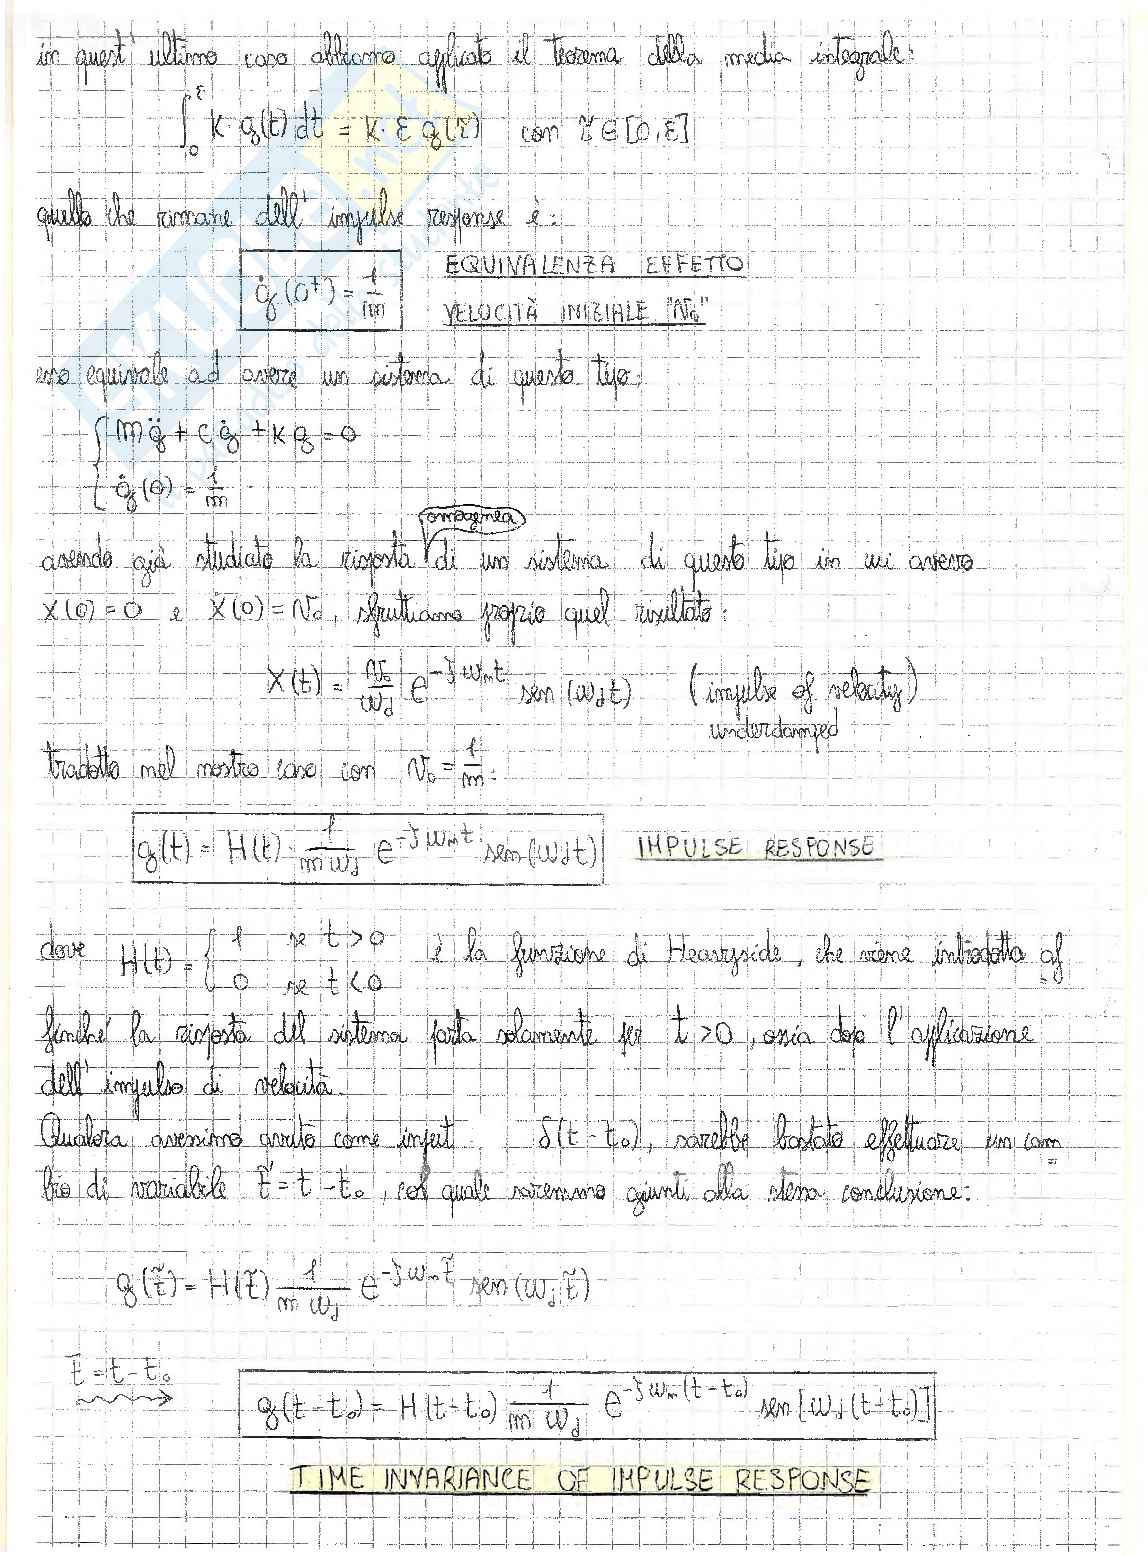 in quest'ultimo caso abbiamo applicato il teorema della media integrale:
∫₀^ε K·g(t) dt = K·ε g(t̃) con t̃ ∈ [0,ε]
quello che rimane dell'impulse response è:
ġ(0⁺) = 1/m EQUIVALENZA EFFETTO
VELOCITÀ INIZIALE "v₀"
esso equivale ad avere un sistema di questo tipo:
{ m g̈ + c ġ + k g = 0
{ ġ(0) = 1/m
omogenea
avendo già studiato la risposta di un sistema di questo tipo in cui avevo
x(0) = 0 e ẋ(0) = v₀, sfruttiamo proprio quel risultato:
x(t) = v₀/ω_d e^(-ζω_n t) sen(ω_d t) (impulse of velocity)
underdamped
tradotto nel nostro caso con v₀ = 1/m:
g(t) = H(t) · 1/(m ω_d) e^(-ζω_n t) sen(ω_d t) IMPULSE RESPONSE
dove H(t) = { 1 se t > 0 è la funzione di Heavyside, che viene introdotta af
0 se t < 0
finché la risposta del sistema parta solamente per t > 0, ossia dopo l'applicazione
dell'impulso di velocità.
Qualora avessimo avuto come input δ(t - t₀), sarebbe bastato effettuare un cam
bio di variabile t̃ = t - t₀, col quale saremmo giunti alla stessa conclusione:
g(t̃) = H(t̃) 1/(m ω_d) e^(-ζω_n t̃) sen(ω_d t̃)
t̃ = t - t₀
g(t-t₀) = H(t-t₀) 1/(m ω_d) e^(-ζω_n(t-t₀)) sen[ω_d(t-t₀)]
TIME INVARIANCE OF IMPULSE RESPONSE